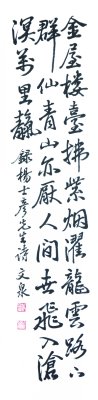 金屋楼臺拂紫烟濯龍雲路下
群仙青山亦厭人間世飛入滄
溟萬里 錄楊士彥先生詩 文泉